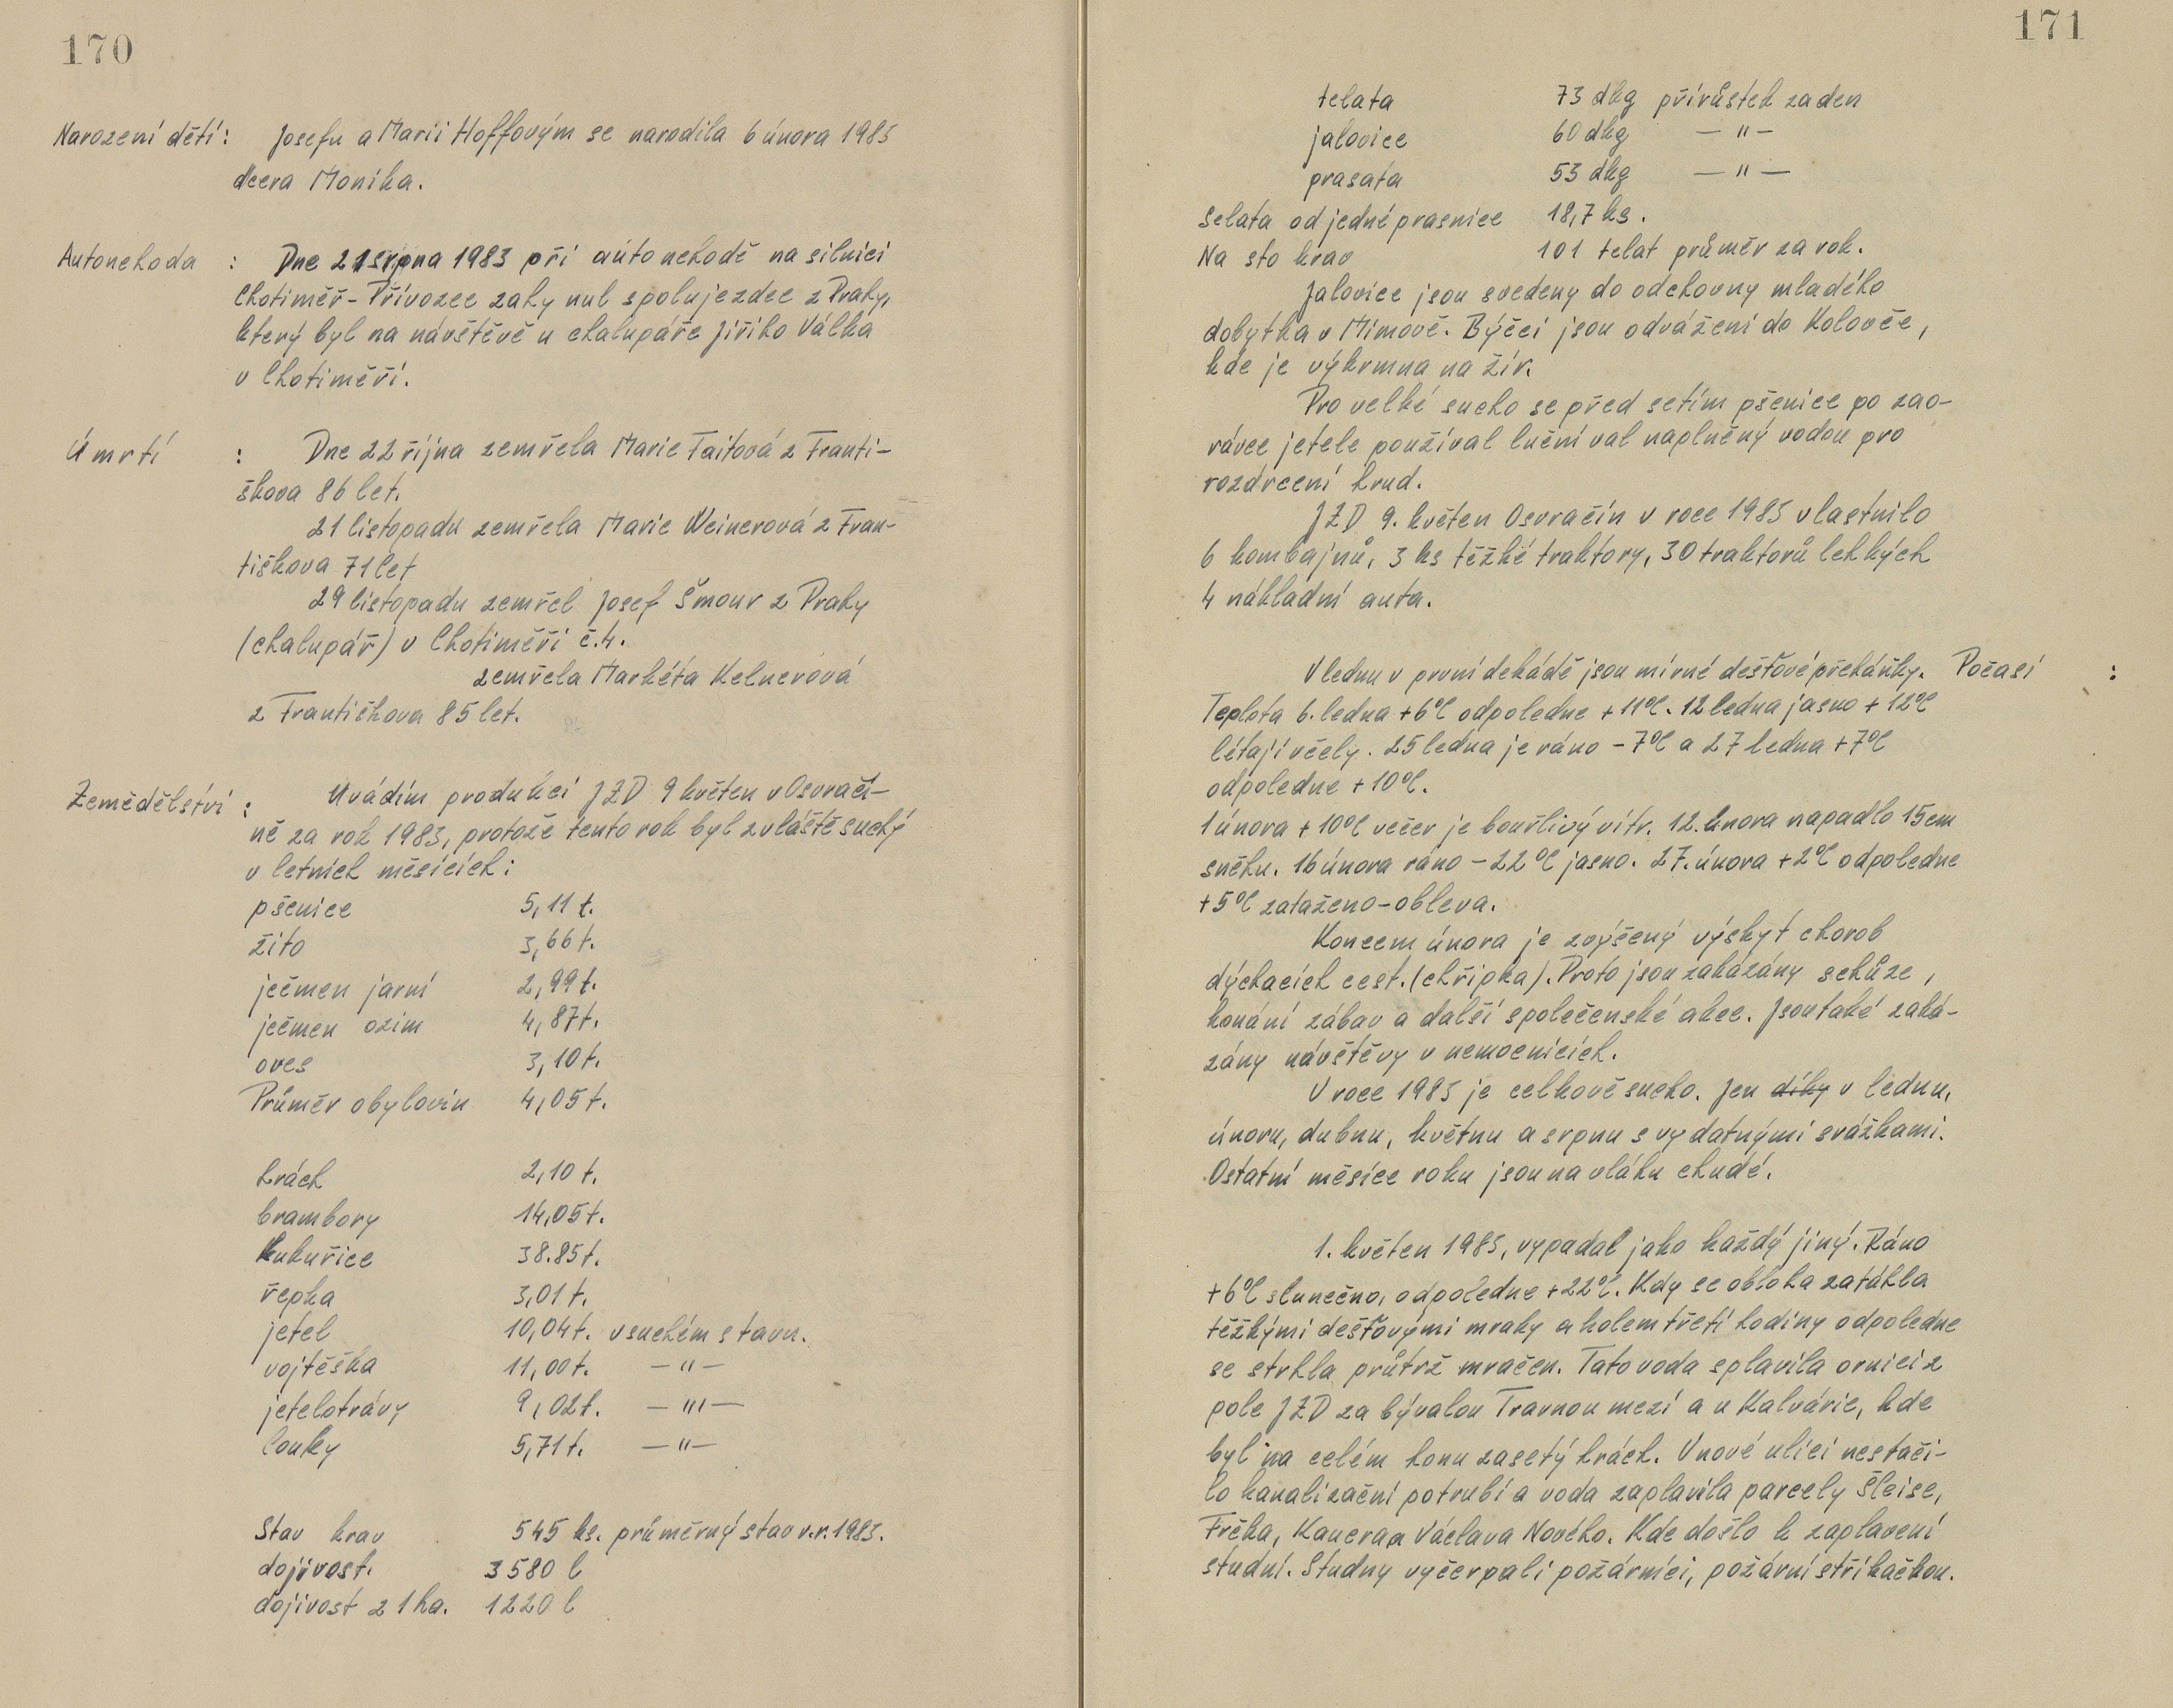 170
Narození dětí: Josefu a Marii Hoffovým se narodila 6 února 1983
dcera Monika.
Autonehoda : Dne 21 srpna 1983 při autonehodě na silnici
Chotiměř - Přívozec zahynul spolujezdec z Prahy,
který byl na návštěvě u chalupáře Jiřího Válka
v Chotiměři.
Úmrtí : Dne 22 října zemřela Marie Taitová z Franti-
škova 86 let.
21 listopadu zemřela Marie Weinerová z Fran-
tiškova 71 let
29 listopadu zemřel Josef Šmour z Prahy
(chalupář) v Chotiměři č.4.
zemřela Markéta Kelnerová
z Františkova 85 let.
Zemědělství : Uvádím produkci JZD 9 květen v Osvračí-
ně za rok 1983, protože tento rok byl zvláště suchý
v letních měsících:
pšenice 5,11 t.
žito 3,66 t.
ječmen jarní 2,99 t.
ječmen ozim 4,87 t.
oves 3,10 t.
Průměr obylovin 4,05 t.
hrách 2,10 t.
brambory 14,05 t.
kukuřice 38.85 t.
řepka 3,01 t.
jetel 10,04 t. v suchém stavu.
vojtěška 11,00 t. — " —
jetelotrávy 9,02 t. — " —
louky 5,71 t. — " —
Stav krav 545 ks. průměrný stav v.r. 1983.
dojivost. 3580 l
dojivost z 1 ha. 1220 l
171
telata 73 dkg přírůstek za den
jalovice 60 dkg — " —
prasata 53 dkg — " —
Selata od jedné prasnice 18,7 ks.
Na sto krav 101 telat průměr za rok.
Jalovice jsou svedeny do odchovny mladého
dobytka v Mimově. Býčci jsou odváženi do Koloveče,
kde je výkrmna na žír.
Pro velké sucho se před setím pšenice po zao-
rávce jetele používal luční val naplněný vodou pro
rozdrcení hrud.
JZD 9. květen Osvračín v roce 1983 vlastnilo
6 kombajnů, 3 ks těžké traktory, 30 traktorů lehkých
4 nákladní auta.
V lednu v první dekádě jsou mírné dešťové přeháňky. Počasí :
Teplota 6. ledna +6°C odpoledne +11°C. 12 ledna jasno +12°C
létají včely. 25 ledna je ráno -7°C a 27 ledna +7°C
odpoledne +10°C.
1 února +10°C večer je bouřlivý vítr. 12. února napadlo 15 cm
sněhu. 16 února ráno -22°C jasno. 27. února +2°C odpoledne
+5°C zataženo - obleva.
Koncem února je zvýšený výskyt chorob
dýchacích cest. (chřipka). Proto jsou zakázány schůze,
konání zábav a další společenské akce. Jsou také zaká-
zány návštěvy v nemocnicích.
V roce 1983 je celkově sucho. Jen díky v lednu,
únoru, dubnu, květnu a srpnu s vydatnými srážkami.
Ostatní měsíce roku jsou na vláhu chudé.
1. květen 1983, vypadal jako každý jiný. Ráno
+6°C slunečno, odpoledne +22°C. Kdy se obloha zatáhla
těžkými dešťovými mraky a kolem třetí hodiny odpoledne
se strhla průtrž mračen. Tato voda splavila ornici z
pole JZD za bývalou Travnou mezí a u Kalvárie, kde
byl na celém honu zasetý hrách. V nové ulici nestači-
lo kanalizační potrubí a voda zaplavila parcely Šleise,
Frčka, Kanera a Václava Nového. Kde došlo k zaplavení
studní. Studny vyčerpali požárníci, požární stříkačkou.